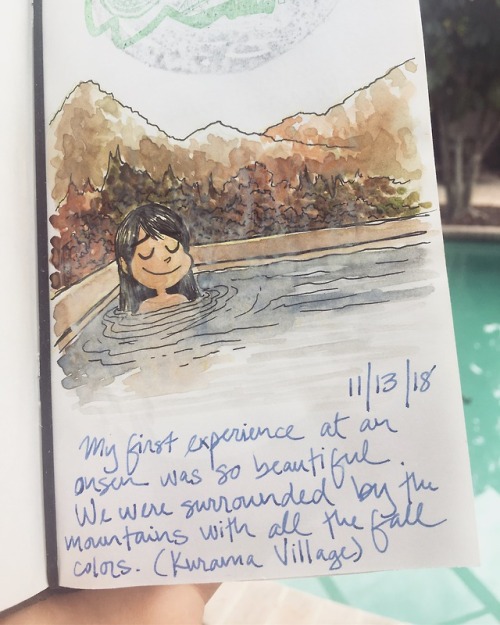 11/13/18
My first experience at an
onsen was so beautiful.
We were surrounded by the
mountains with all the fall
colors. (Kurama Village)